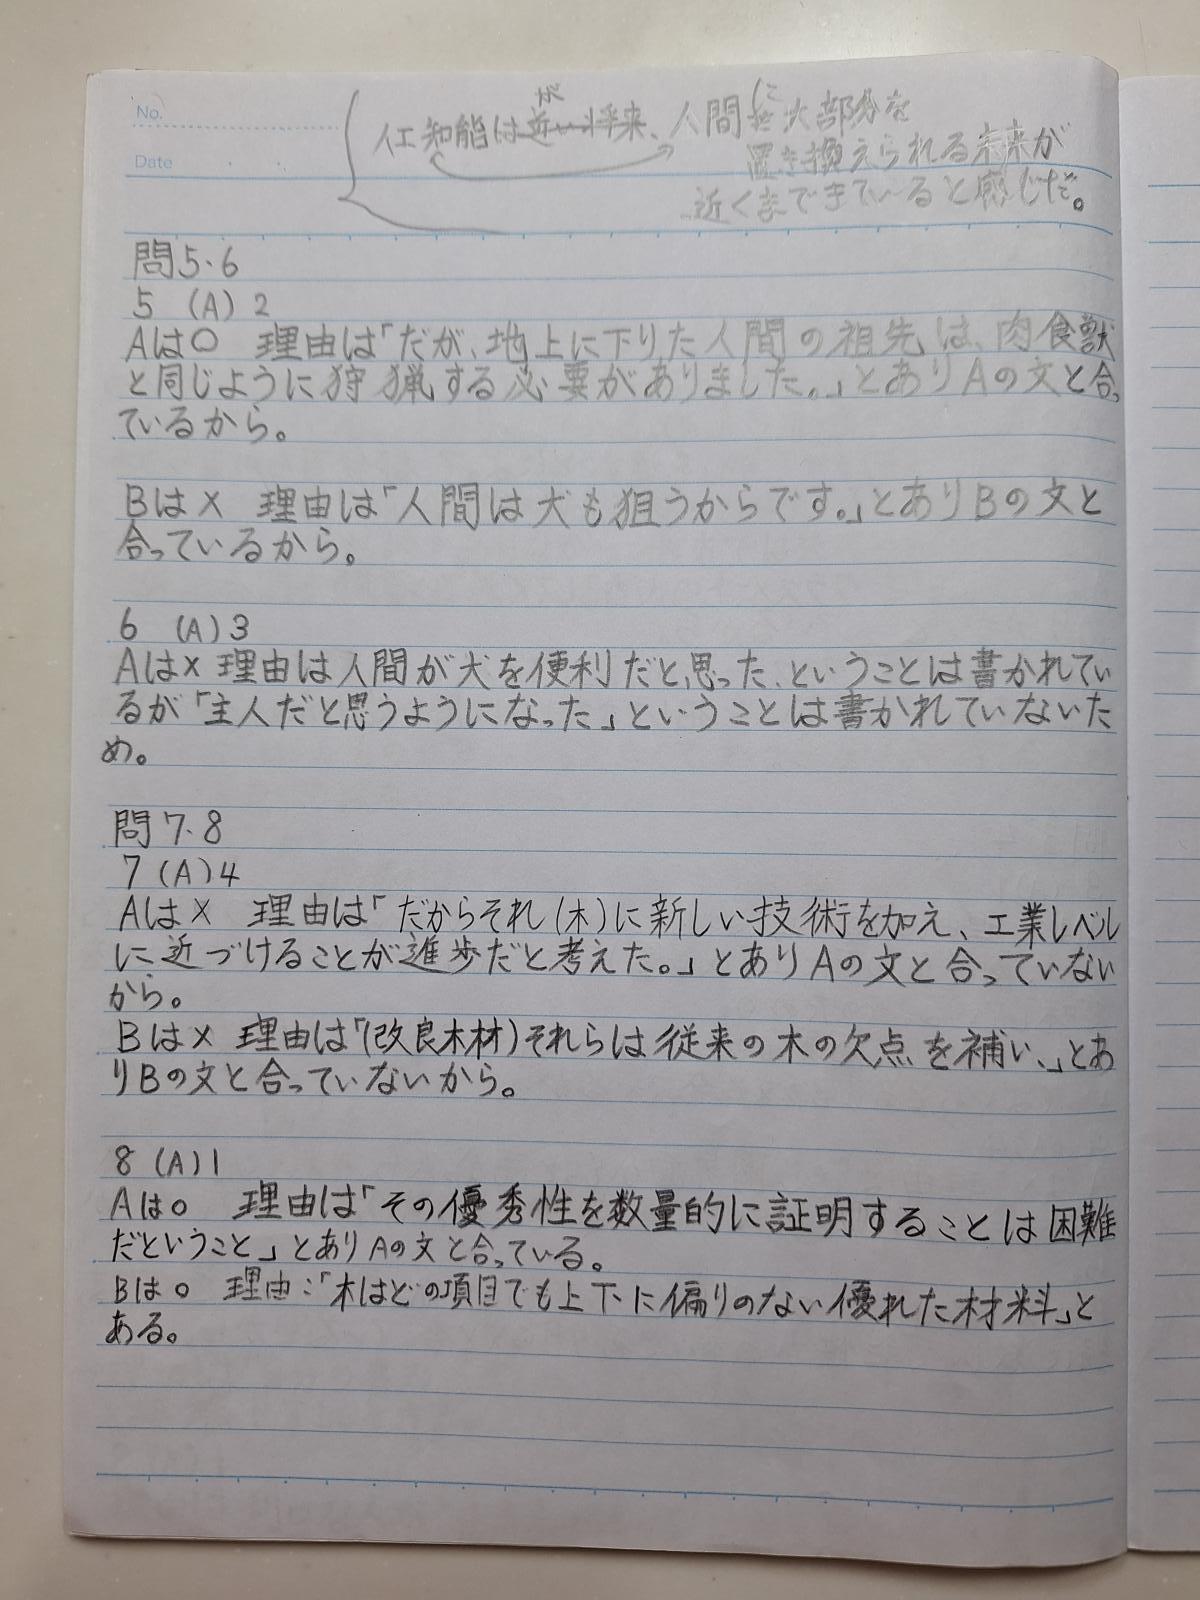 No.
Date
が に
人工知能は近い将来、人間を大部分を
置き換えられる未来が
近くまできていると感じた。
問5.6
5 (A) 2
Aは○ 理由は「だが、地上に下りた人間の祖先は、肉食獣
と同じように狩猟する必要がありました。」とありAの文と合っ
ているから。
Bは× 理由は「人間は犬も狙うからです。」とありBの文と
合っているから。
6 (A) 3
Aは× 理由は人間が犬を便利だと思った、ということは書かれてい
るが「主人だと思うようになった」ということは書かれていないた
め。
問7.8
7 (A) 4
Aは× 理由は「だからそれ(木)に新しい技術を加え、工業レベル
に近づけることが進歩だと考えた。」とありAの文と合っていない
から。
Bは× 理由は「(改良木材)それらは従来の木の欠点を補い、」とあ
りBの文と合っていないから。
8 (A) 1
Aは○ 理由は「その優秀性を数量的に証明することは困難
だということ」とありAの文と合っている。
Bは○ 理由:「木はどの項目でも上下に偏りのない優れた材料」と
ある。